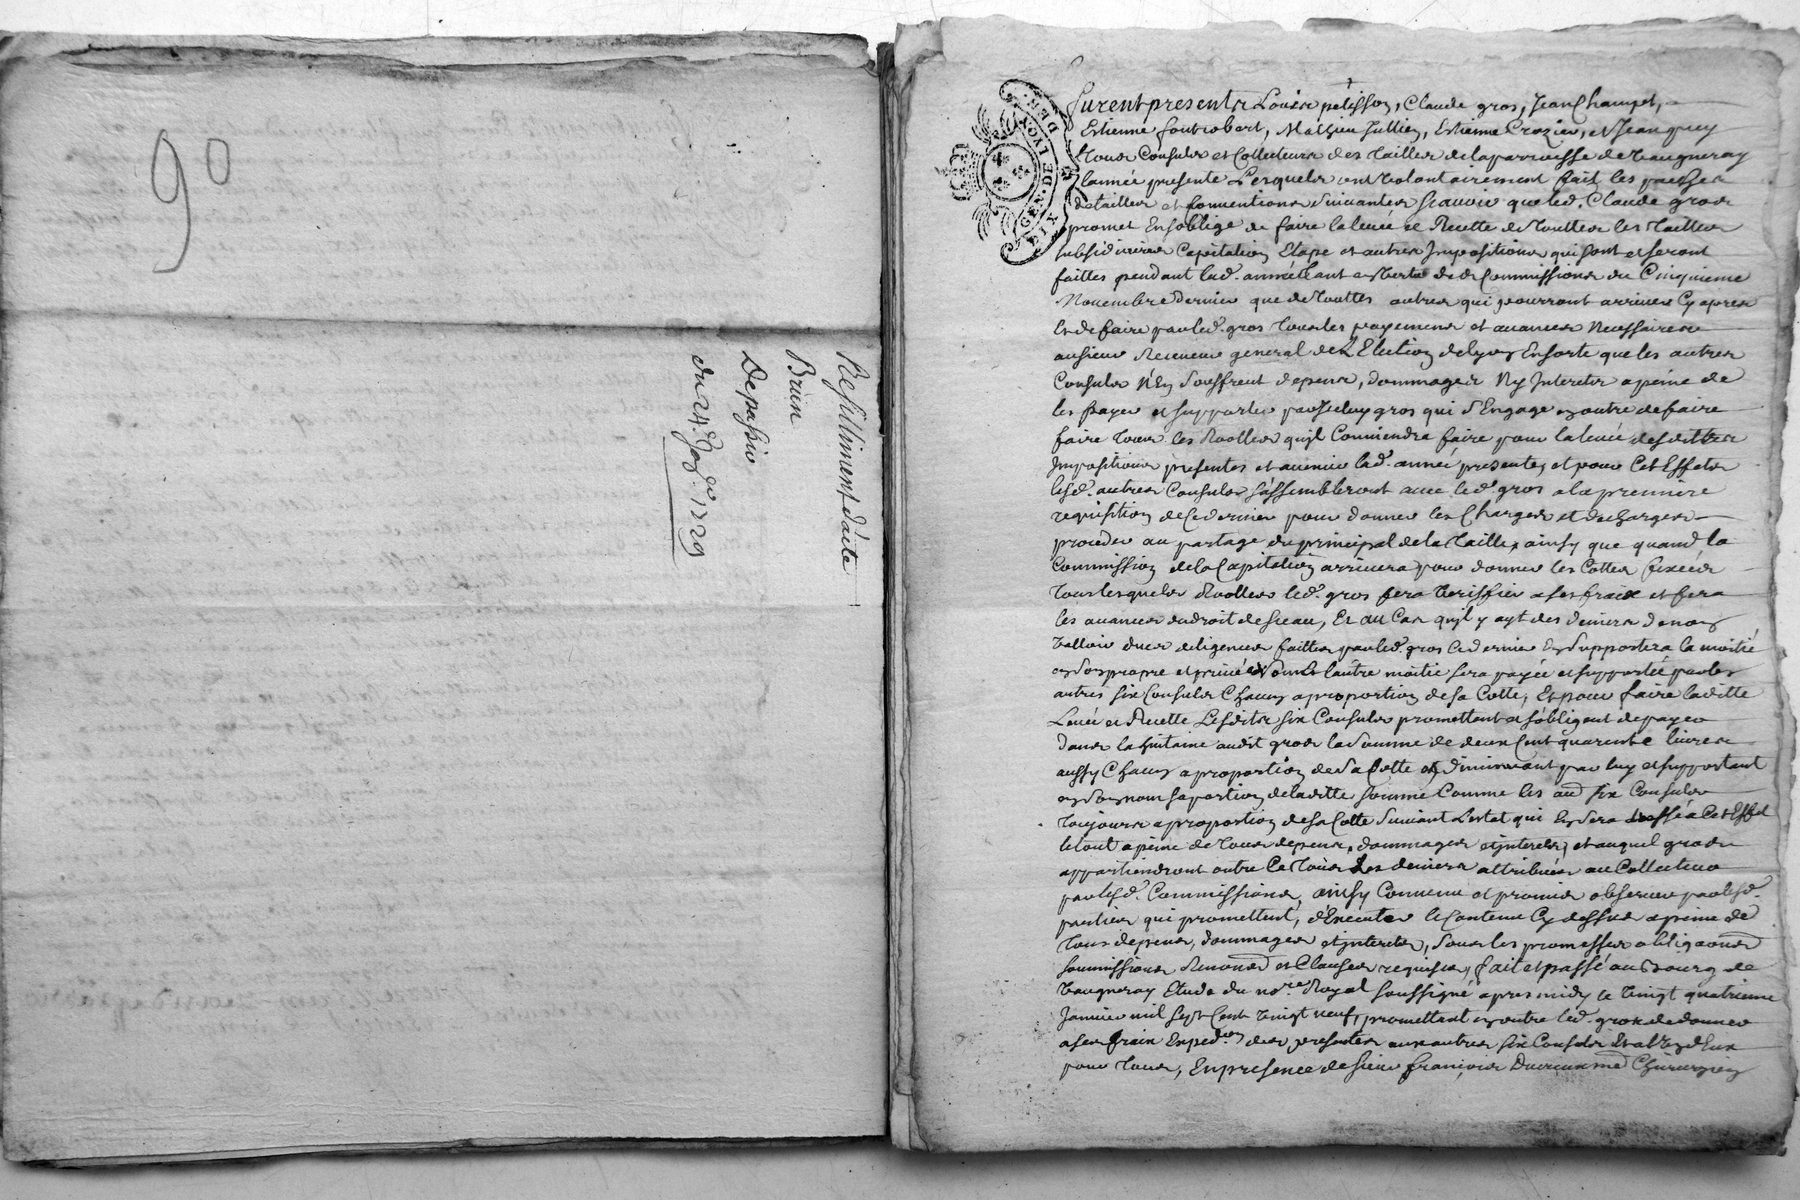 90
Resiliment d'acte
Brun
Depassio
du 24e. Janv. 1729
GEN. DE LYON
SIX DEN.
furent presents Louis pelisson, Claude gros, Jean Champet,
Estienne fontrobert, Mathieu Jullien, Estienne Crozier, et Jean guy
tous Consuls et Collecteurs des tailles de la parroisse de Vaugneray
lannée presente Lesquels ont volontairement fait les pactes
detailles et Conventions Suivantes scavoir que led. Claude gros
promet Et soblige de faire la levée et Recette de touttes les tailles
subsidiaires Capitation Etape et autres Impositions qui sont et seront
faittes pendant lad. année tant en vertu des Commissions du Cinquieme
Novembre Dernier que de touttes autres qui pourront arriver Cy apres
Et de faire par led. gros tous les payemens et avances Necessaires
au sieur Receveur general de L'Election de lyon Ensorte que les autres
Consuls N'En souffrent depens, dommages Ny Interets a peine de
les payer et supporter par Iceluy gros qui s'Engage en outre de faire
faire tous les Roolles qu'jl Conviendra faire pour la levée desdittes
Impositions presentes et avenir lad. année presente, et pour Cet Effet
lesd. autres Consuls s'assembleront avec led. gros a la premiere
requisition de Ce dernier pour donner les Charges et descharges
proceder au partage du principal de la taille, ainsy que quand la
Commission de la Capitation arrivera pour donner les Cottes fixées
tous lesquels Roolles led. gros fera veriffier a ses fraix et fera
les avances du droit de sceau, Et au Cas qu'jl y ayt des deniers de non
valloir dues diligences faittes par led. gros Ce dernier En supportera la moitié
en son propre et privé Nom et lautre moitié sera payée et supportée par les
autres six Consuls Chacun a proportion de sa Cotte, Et pour faire laditte
Levée et Recette Lesdits six Consuls promettent et s'obligent de payer
dans la huitaine audit gros la somme de deux Cent quarente livres
aussy Chacun a proportion de sa Cotte et diminuant par luy et supportant
en son nom sa portion de laditte somme Comme les aud. six Consuls
toujours a proportion de sa Cotte suivant L'estat qui En sera dressé a Cet Effet
le tout a peine de tous depens, dommages et jnterets, et auquel gros
appartiendront outre Ce tous Les deniers attribués au Collecteur
par lesd. Commissions, ainsy Convenu et promis observer par lesd.
parties qui promettent, d'Executer le Contenu Cy dessus a peine de
tous depens, dommages et jnterets, sous les promesses obligaons
soumissions Renons et Clauses requises, fait et passé au Bourg de
Vaugneray Etude du nore. Royal soussigné apres midy le vingt quatrieme
Janvier mil sept Cent vingt neuf, promettant en outre led. gros de donner
a ses frais Exped.on des presentes aux autres six Consuls Et a l'un d'Eux
pour tous, En presence de sieur françois Ducreux me Chirurgien